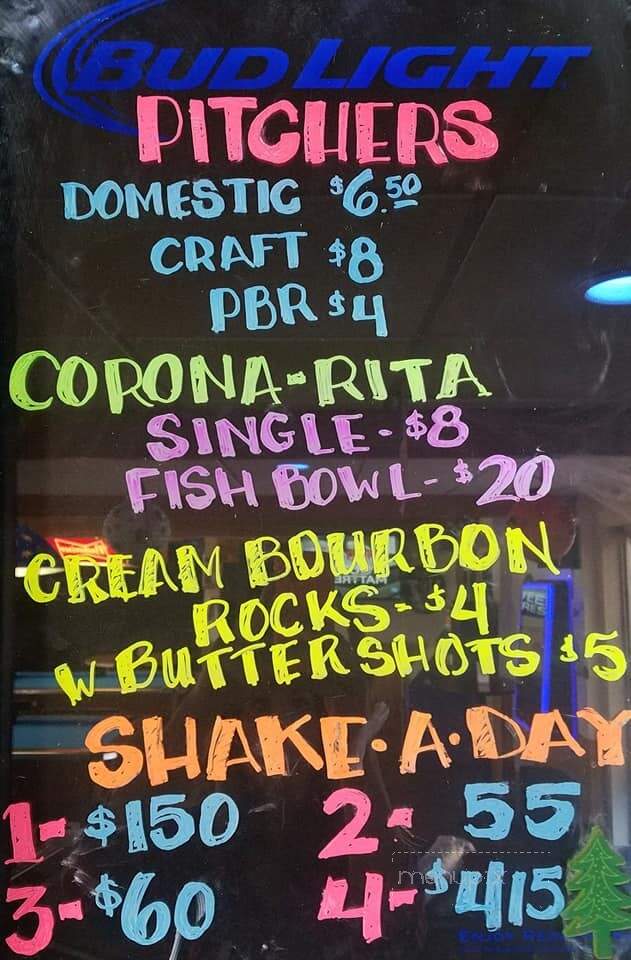 BUD LIGHT
PITCHERS
DOMESTIC $6.50
CRAFT $8
PBR $4
CORONA-RITA
SINGLE- $8
FISH BOWL- $20
CREAM BOURBON
ROCKS- $4
W BUTTERSHOTS $5
SHAKE·A·DAY
1- $150 2- 55
3- $60 4- $415
menupix
ENJOY